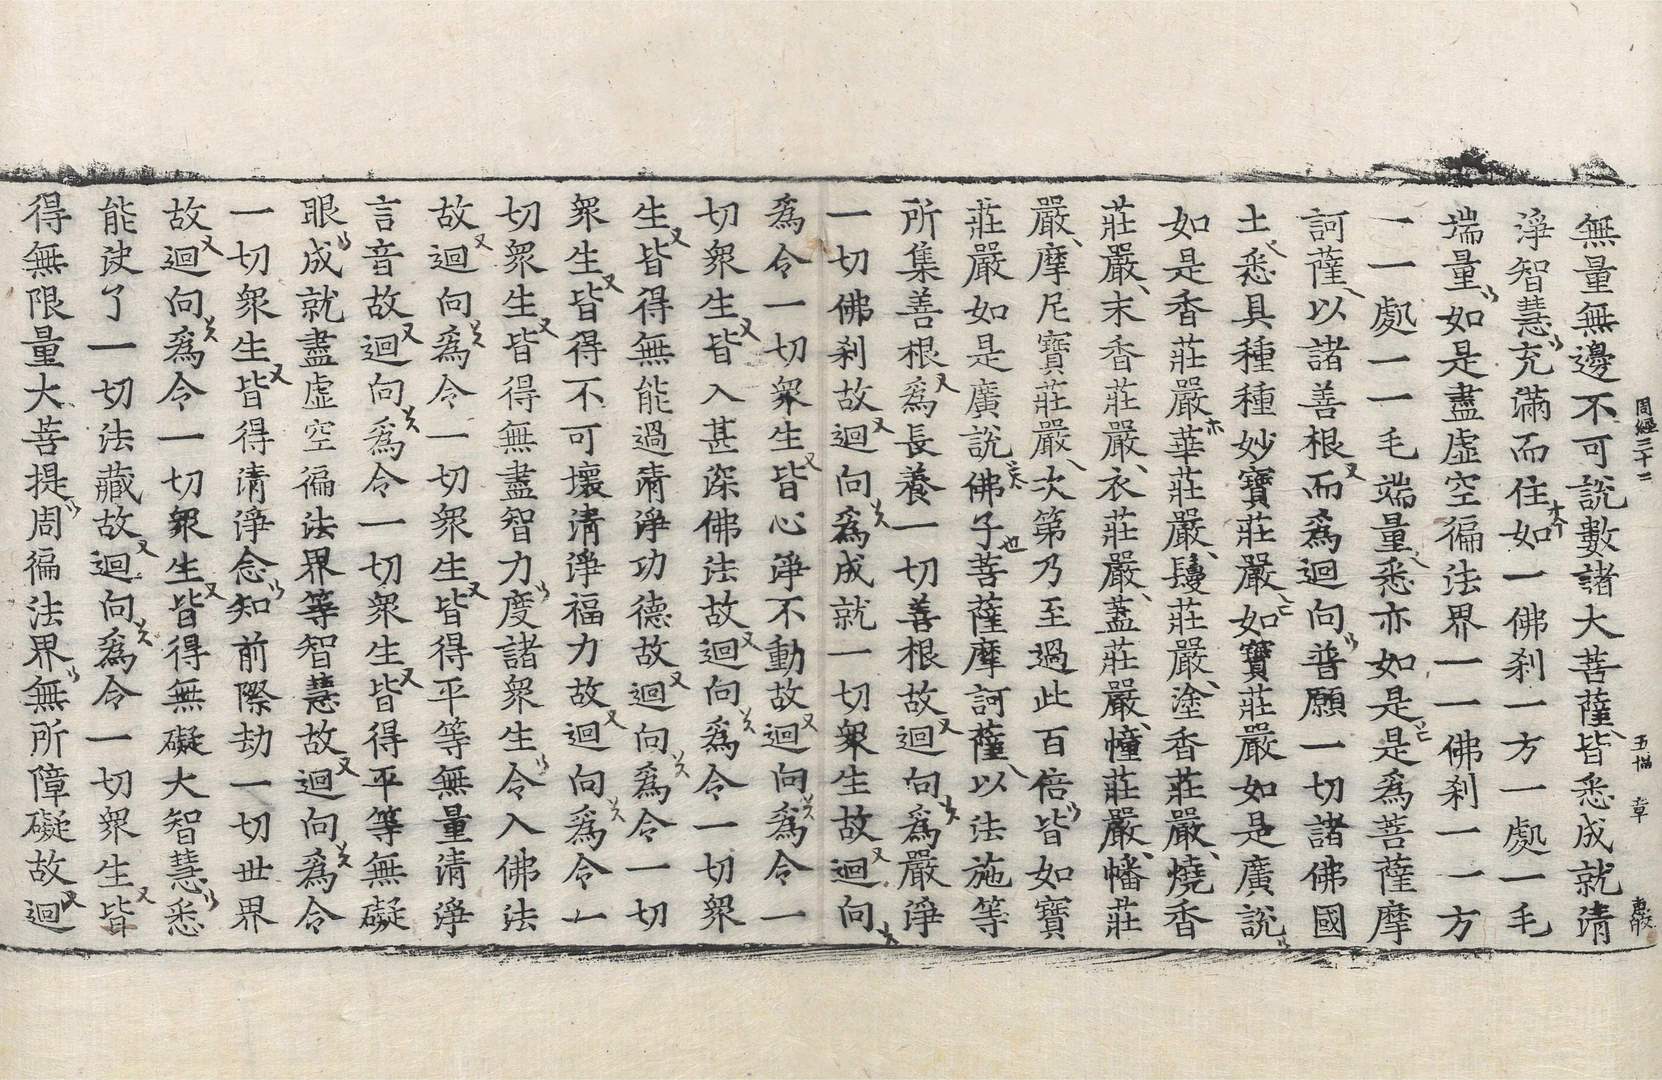 周經三十二
無量無邊不可說數諸大菩薩皆悉成就清
淨智慧充滿而住如一佛刹一方一處一毛
端量如是盡虛空徧法界一一佛刹一一方
一一處一一毛端量悉亦如是是爲菩薩摩
訶薩以諸善根而爲迴向普願一切諸佛國
土悉具種種妙寶莊嚴如寶莊嚴如是廣說
如是香莊嚴華莊嚴鬘莊嚴塗香莊嚴燒香
莊嚴末香莊嚴衣莊嚴蓋莊嚴幢莊嚴幡莊
嚴摩尼寶莊嚴次第乃至過此百倍皆如寶
莊嚴如是廣說佛子菩薩摩訶薩以法施等
所集善根爲長養一切善根故迴向爲嚴淨
一切佛刹故迴向爲成就一切衆生故迴向
爲令一切衆生皆心淨不動故迴向爲令一
切衆生皆入甚深佛法故迴向爲令一切衆
生皆得無能過清淨功德故迴向爲令一切
衆生皆得不可壞清淨福力故迴向爲令一
切衆生皆得無盡智力度諸衆生令入佛法
故迴向爲令一切衆生皆得平等無量清淨
言音故迴向爲令一切衆生皆得平等無礙
眼成就盡虛空徧法界等智慧故迴向爲令
一切衆生皆得清淨念知前際劫一切世界
故迴向爲令一切衆生皆得無礙大智慧悉
能決了一切法藏故迴向爲令一切衆生皆
得無限量大菩提周徧法界無所障礙故迴